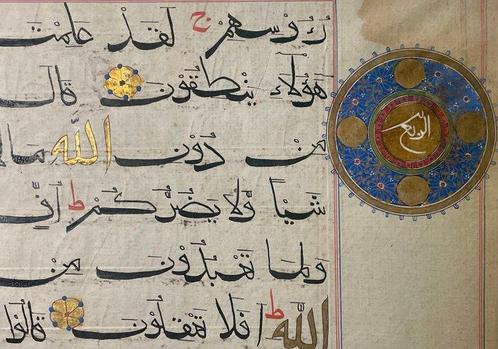 رُوسِهِمْ ج لَقَدْ عَلِمْتَ
هَؤُلَاءِ يَنْطِقُونَ قَالَ
مِن دُونِ اللَّهِ مَا لَا
شَيْأً وَّلَا يَضُرُّكُمْ ط اُفٍّ
وَلِمَا تَعْبُدُونَ مِن
اللَّهِ ط اَفَلَا تَعْقِلُونَ قَالُوا